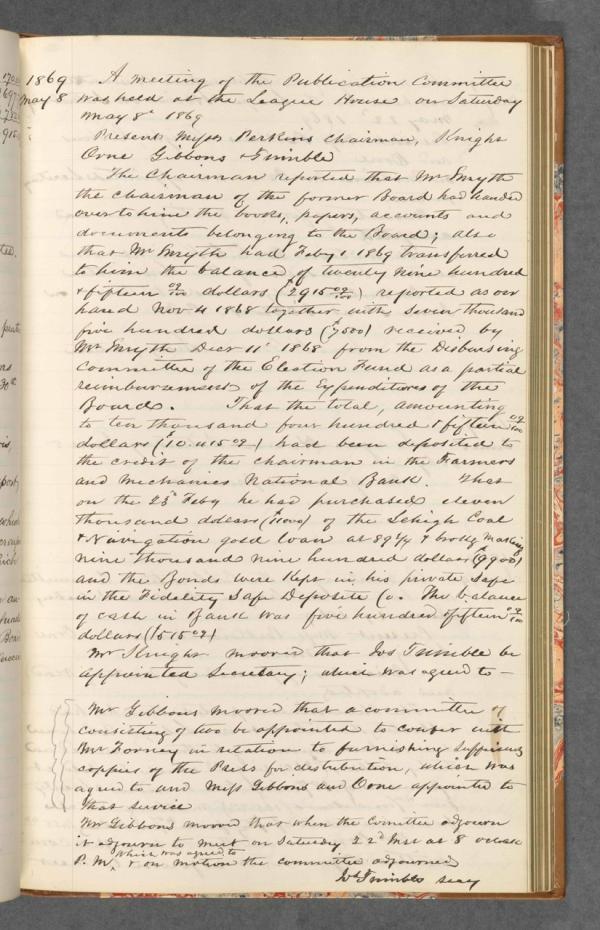 1869 A meeting of the Publication Committee
May 8 was held at the League House on Saturday
May 8th 1869
Present Messrs Perkins Chairman, Knight
Orne Gibbons & Trimble
The Chairman reported that Mr Smyth
the chairman of the former Board had handed
over to him the books, papers, accounts and
documents belonging to the Board; also
that Mr Smyth had Feby 1 1869 transferred
to him the balance of twenty nine hundred
& fifteen 09/100 dollars ($2915 09/100) reported as on
hand Nov 4 1868 together with seven thousand
five hundred dollars ($7500) received by
Mr Smyth Decr 11th 1868 from the Disbursing
Committee of the Election Fund as a partial
reimbursement of the Expenditures of the
Board. That the total, amounting
to ten thousand four hundred & fifteen 09/100
dollars ($10.415 09) had been deposited to
the credit of the chairman in the Farmers
and Mechanics National Bank. That
on the 23d Feby he had purchased eleven
thousand dollars ($11000) of the Lehigh Coal
& Navigation gold loan at 89 3/4 & brokg making
nine thousand nine hundred dollars ($9900)
and the Bonds were kept in his private safe
in the Fidelity Safe Deposite Co. The balance
of cash in Bank was five hundred & fifteen 09/100
dollars ($515 09)
Mr Knight moved that Jos Trimble be
appointed Secretary; which was agreed to —
Mr Gibbons moved that a committee of
consisting of two be appointed to confer with
Mr Forney in relation to furnishing
coppies of the Press for distribution, which was
agreed to and Messrs Gibbons and Orne appointed to
that service
Mr Gibbons moved that when the Comittee adjourn
it adjourn to meet on Saturday 22d Inst at 8 oclock
P. M, which was agreed to & on motion the committee adjourned
Jos Trimble secy